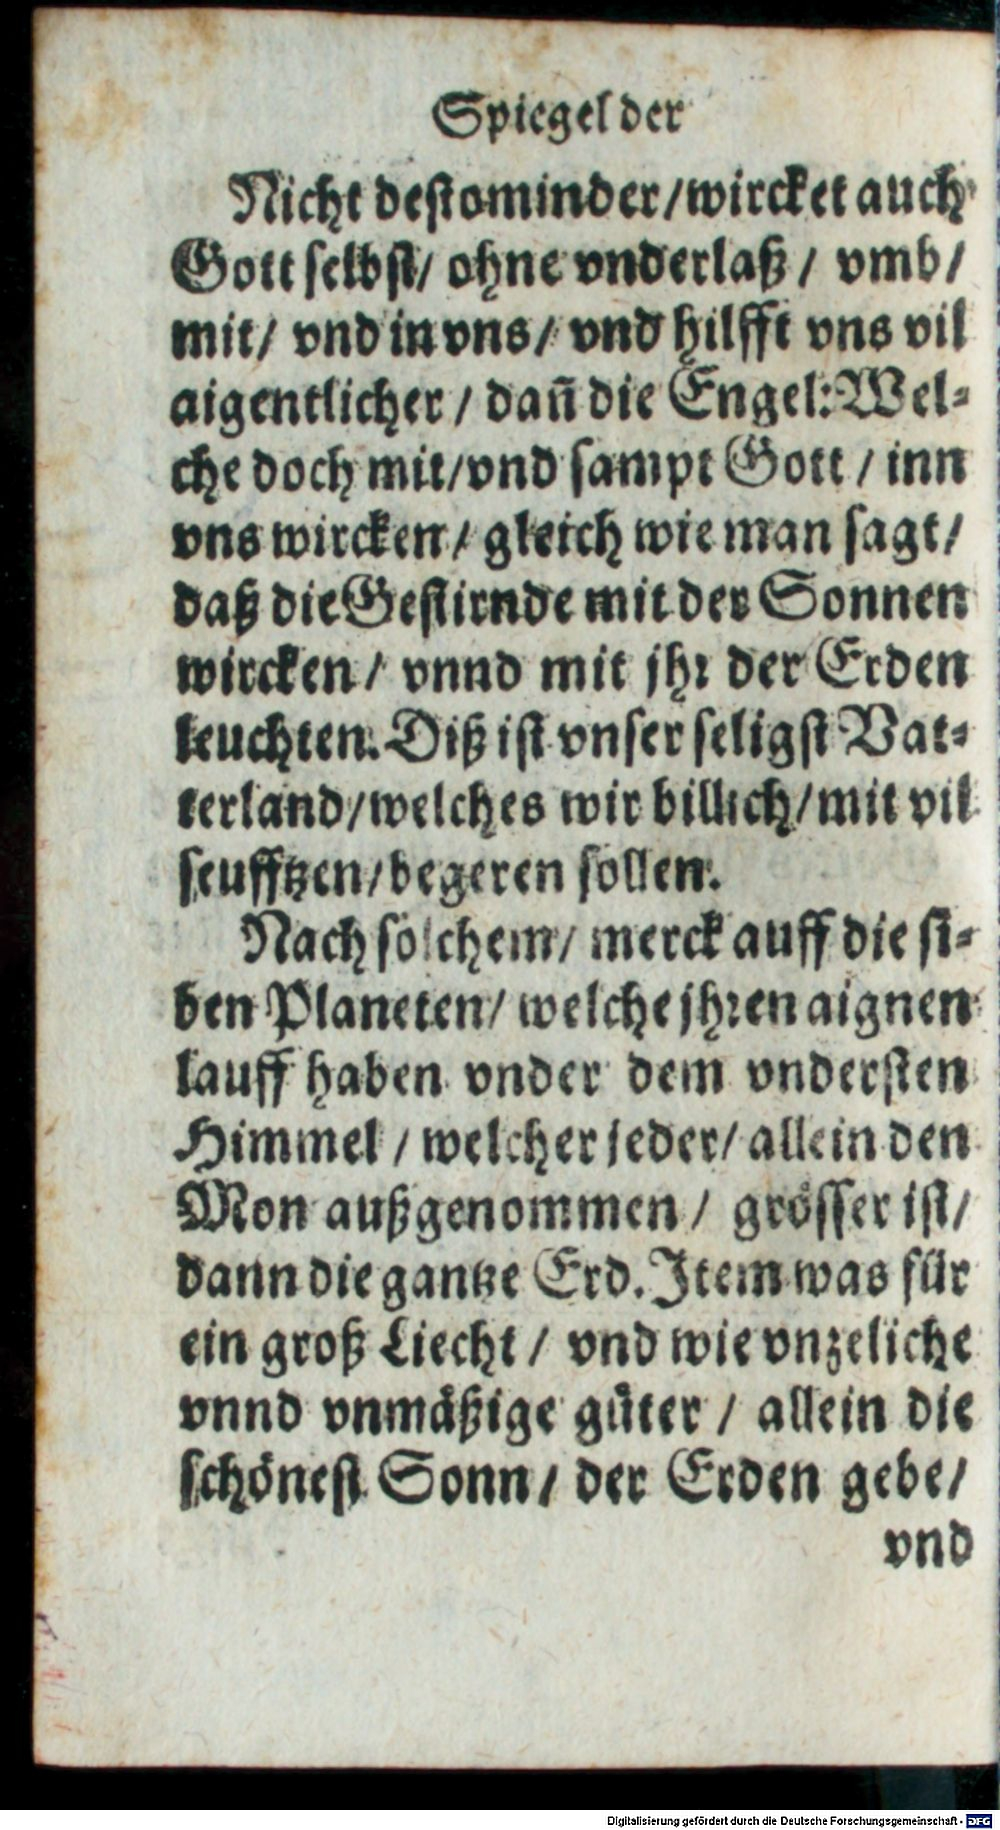 Spiegel der
Nicht destominder/wircket auch
Gott selbst/ ohne vnderlaß / vmb/
mit/ vnd in vns/ vnd hilfft vns vil
aigentlicher / dañ die Engel: Wel-
che doch mit/vnd sampt Gott / inn
vns wircken/ gleich wie man sagt/
daß die Gestirnde mit der Sonnen
wircken/ vnnd mit jhr der Erden
leuchten. Diß ist vnser seligst Vat-
terland/welches wir billich/mit vil
seufftzen/begeren sollen.
Nach solchem/ merck auff die si-
ben Planeten/ welche jhren aignen
lauff haben vnder dem vndersten
Himmel / welcher jeder/ allein den
Mon außgenommen / grösser ist/
dann die gantze Erd. Item was für
ein groß Liecht / vnd wie vnzeliche
vnnd vnmäßige güter / allein die
schönest Sonn/ der Erden gebe/
vnd
Digitalisierung gefördert durch die Deutsche Forschungsgemeinschaft - DFG